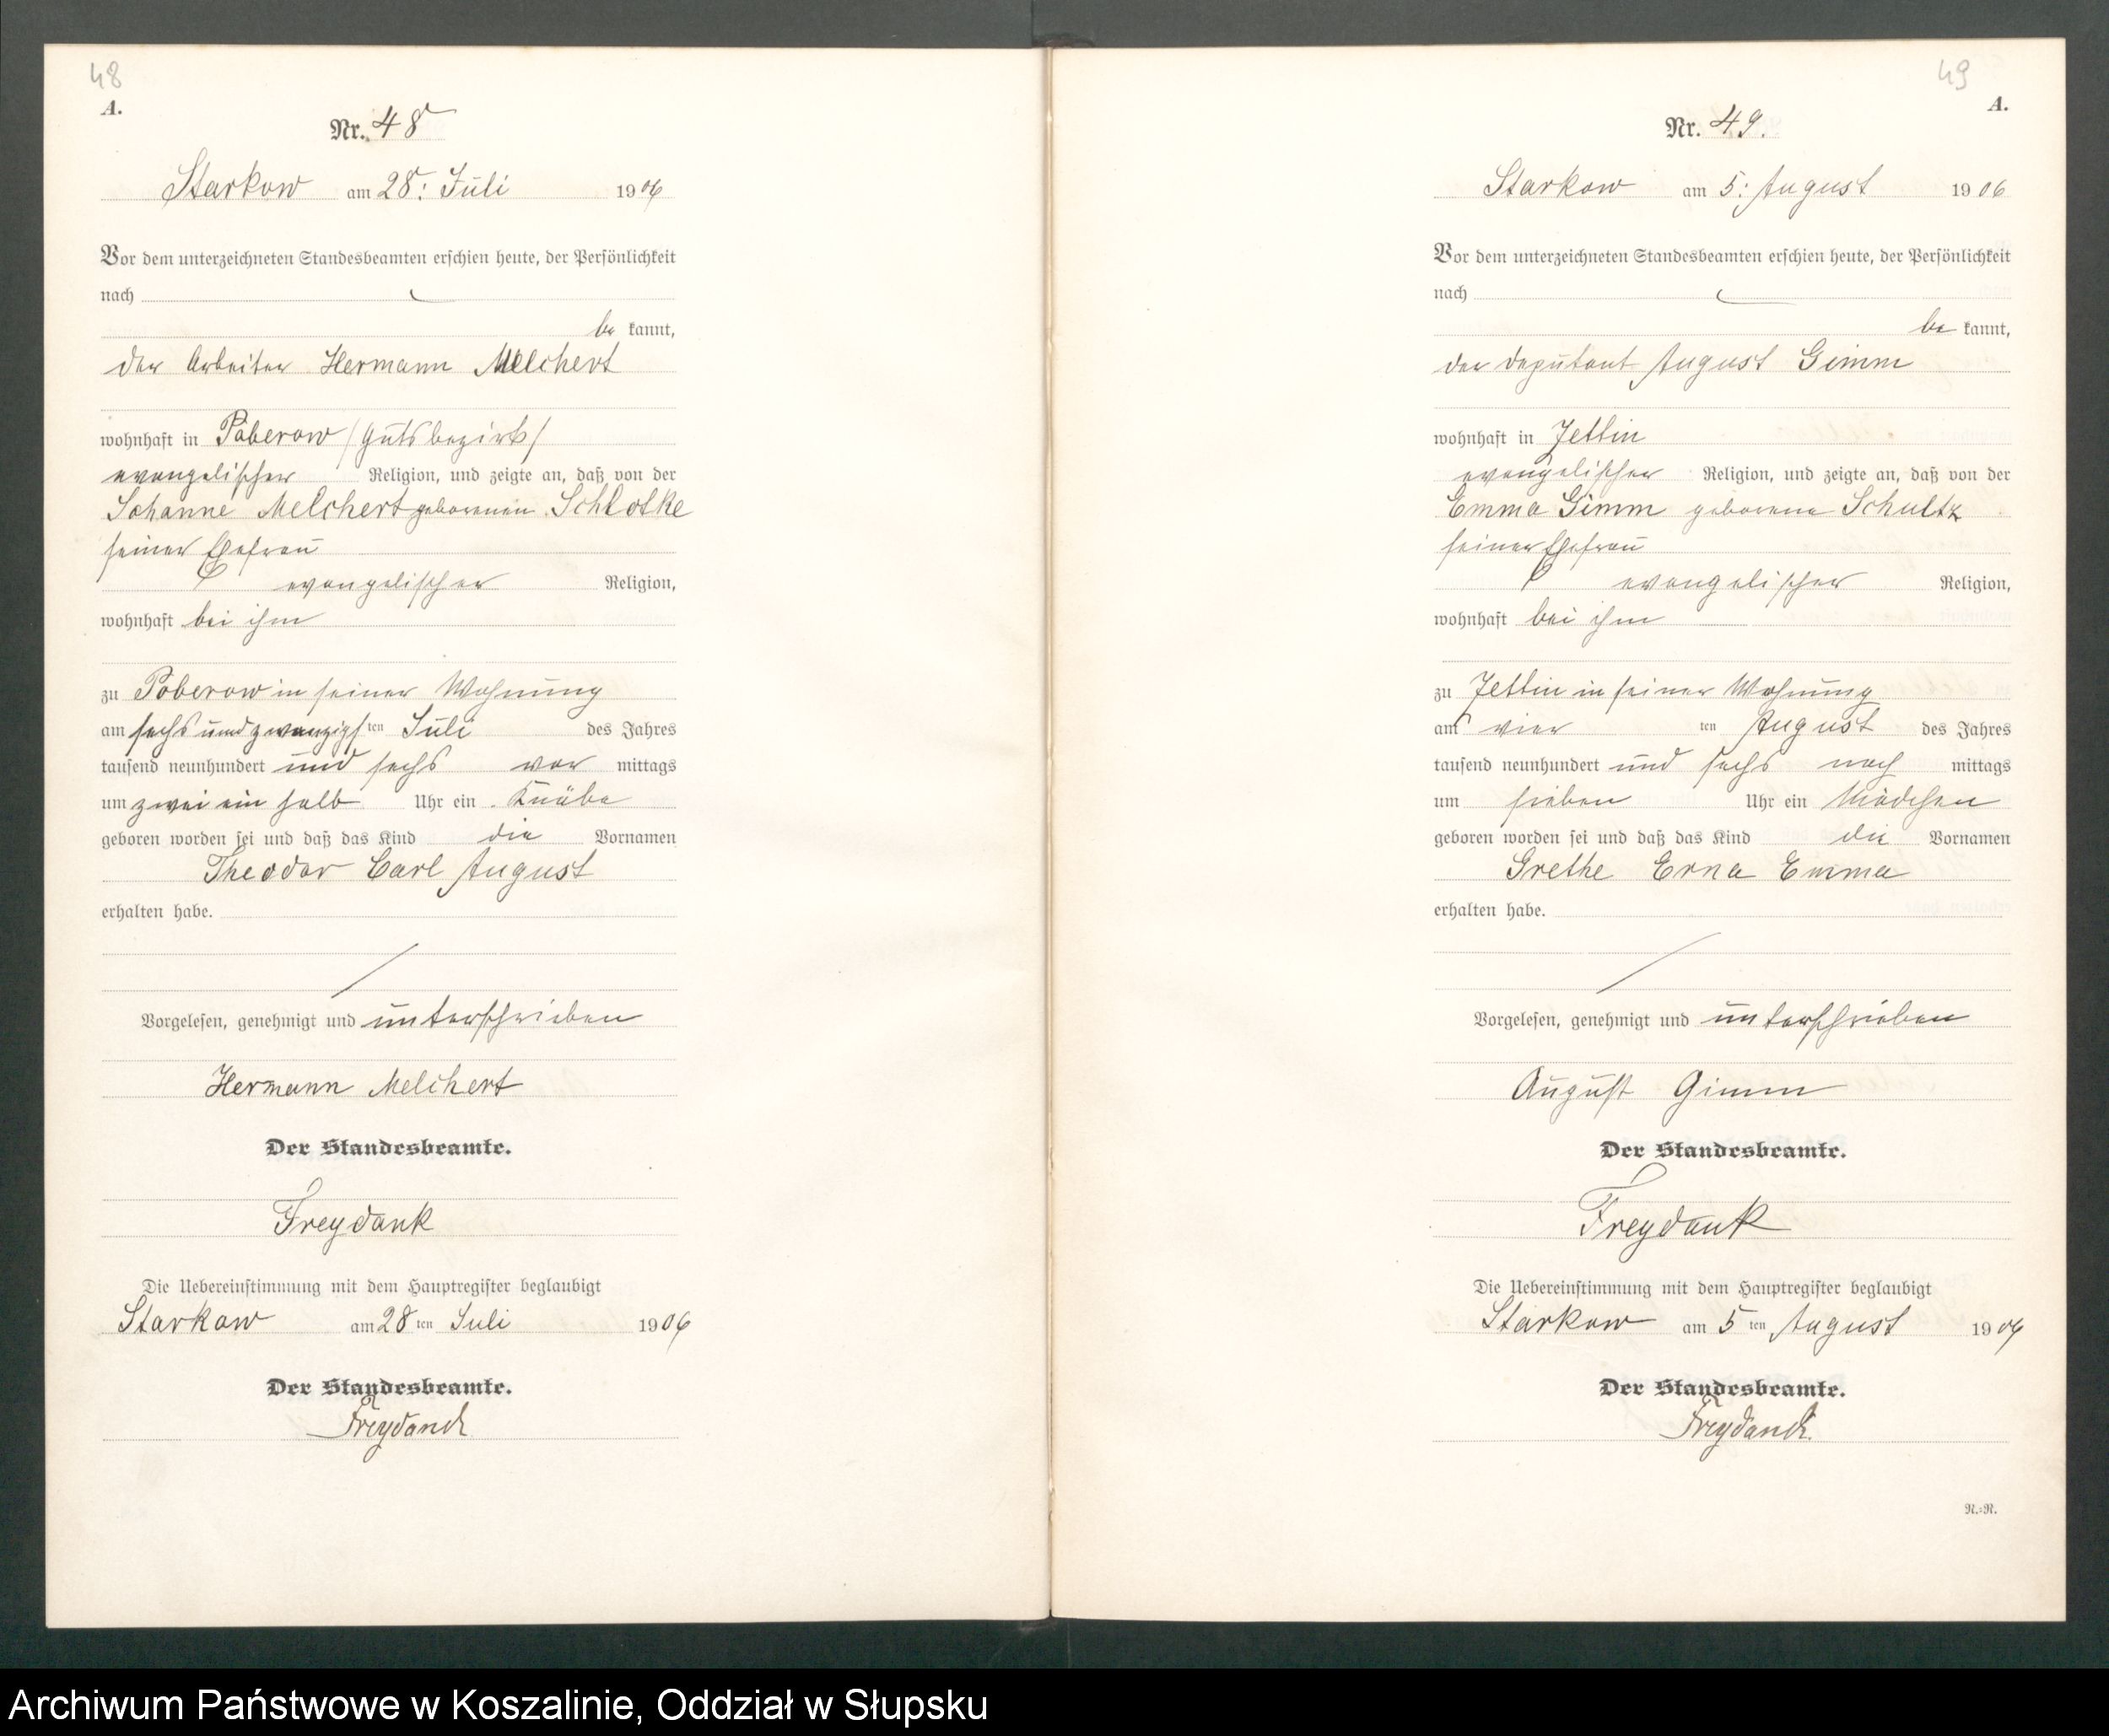 48
A.
Nr. 48
Starkow am 28. Juli 1906
Vor dem unterzeichneten Standesbeamten erschien heute, der Persönlichkeit
nach
be kannt,
der Arbeiter Hermann Melchert
wohnhaft in Poberow /Gutsbezirk/
evangelischer Religion, und zeigte an, daß von der
Johanne Melchert geborenen Schlotke
seiner Ehefrau
evangelischer Religion,
wohnhaft bei ihm
zu Poberow in seiner Wohnung
am sechs und zwanzigsten Juli des Jahres
tausend neunhundert und sechs vor mittags
um zwei ein halb Uhr ein Knabe
geboren worden sei und daß das Kind die Vornamen
Theodor Carl August
erhalten habe.
Vorgelesen, genehmigt und unterschrieben
Hermann Melchert
Der Standesbeamte.
Freydank
Die Uebereinstimmung mit dem Hauptregister beglaubigt
Starkow am 28 ten Juli 1906
Der Standesbeamte.
Freydank
49
A.
Nr. 49.
Starkow am 5. August 1906
Vor dem unterzeichneten Standesbeamten erschien heute, der Persönlichkeit
nach
be kannt,
der Deputant August Gimm
wohnhaft in Jettin
evangelischer Religion, und zeigte an, daß von der
Emma Gimm geborene Schultz
seiner Ehefrau
evangelischer Religion,
wohnhaft bei ihm
zu Jettin in seiner Wohnung
am vier ten August des Jahres
tausend neunhundert und sechs nach mittags
um sieben Uhr ein Mädchen
geboren worden sei und daß das Kind die Vornamen
Grethe Erna Emma
erhalten habe.
Vorgelesen, genehmigt und unterschrieben
August Gimm
Der Standesbeamte.
Freydank
Die Uebereinstimmung mit dem Hauptregister beglaubigt
Starkow am 5 ten August 1906
Der Standesbeamte.
Freydank
N.=N.
Archiwum Państwowe w Koszalinie, Oddział w Słupsku